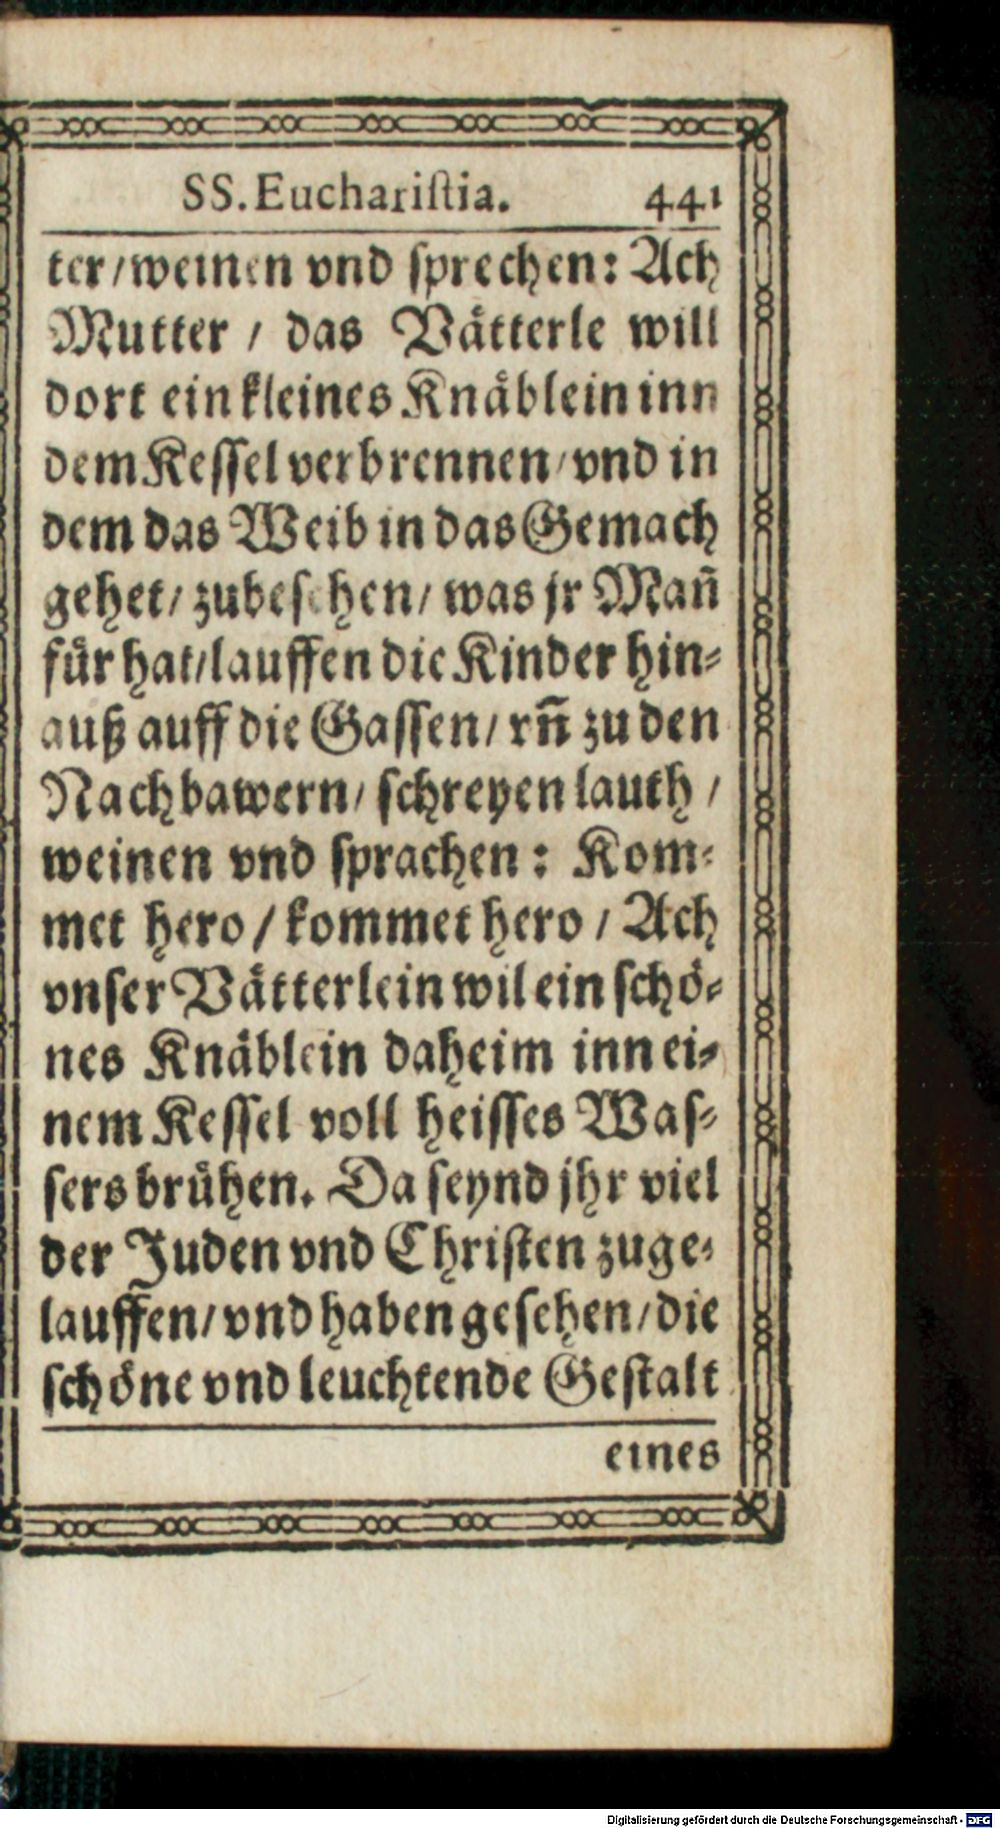 SS. Euchariſtia. 441
ter/weinen vnd ſprechen: Ach
Mutter / das Vätterle will
dort ein kleines Knäblein inn
dem Keſſel verbrennen/vnd in
dem das Weib in das Gemach
gehet/ zubeſehen/ was jr Mañ
für hat/lauffen die Kinder hin⸗
auß auff die Gaſſen/ vñ zu den
Nachbawern/ ſchreyen lauth /
weinen vnd ſprachen: Kom⸗
met hero / kommet hero / Ach
vnſer Vätterlein wil ein ſchö⸗
nes Knäblein daheim inn ei⸗
nem Keſſel voll heiſſes Waſ⸗
ſers brühen. Da ſeynd jhr viel
der Juden vnd Chriſten zuge⸗
lauffen/ vnd haben geſehen/die
ſchöne vnd leuchtende Geſtalt
eines
Digitalisierung gefördert durch die Deutsche Forschungsgemeinschaft - DFG